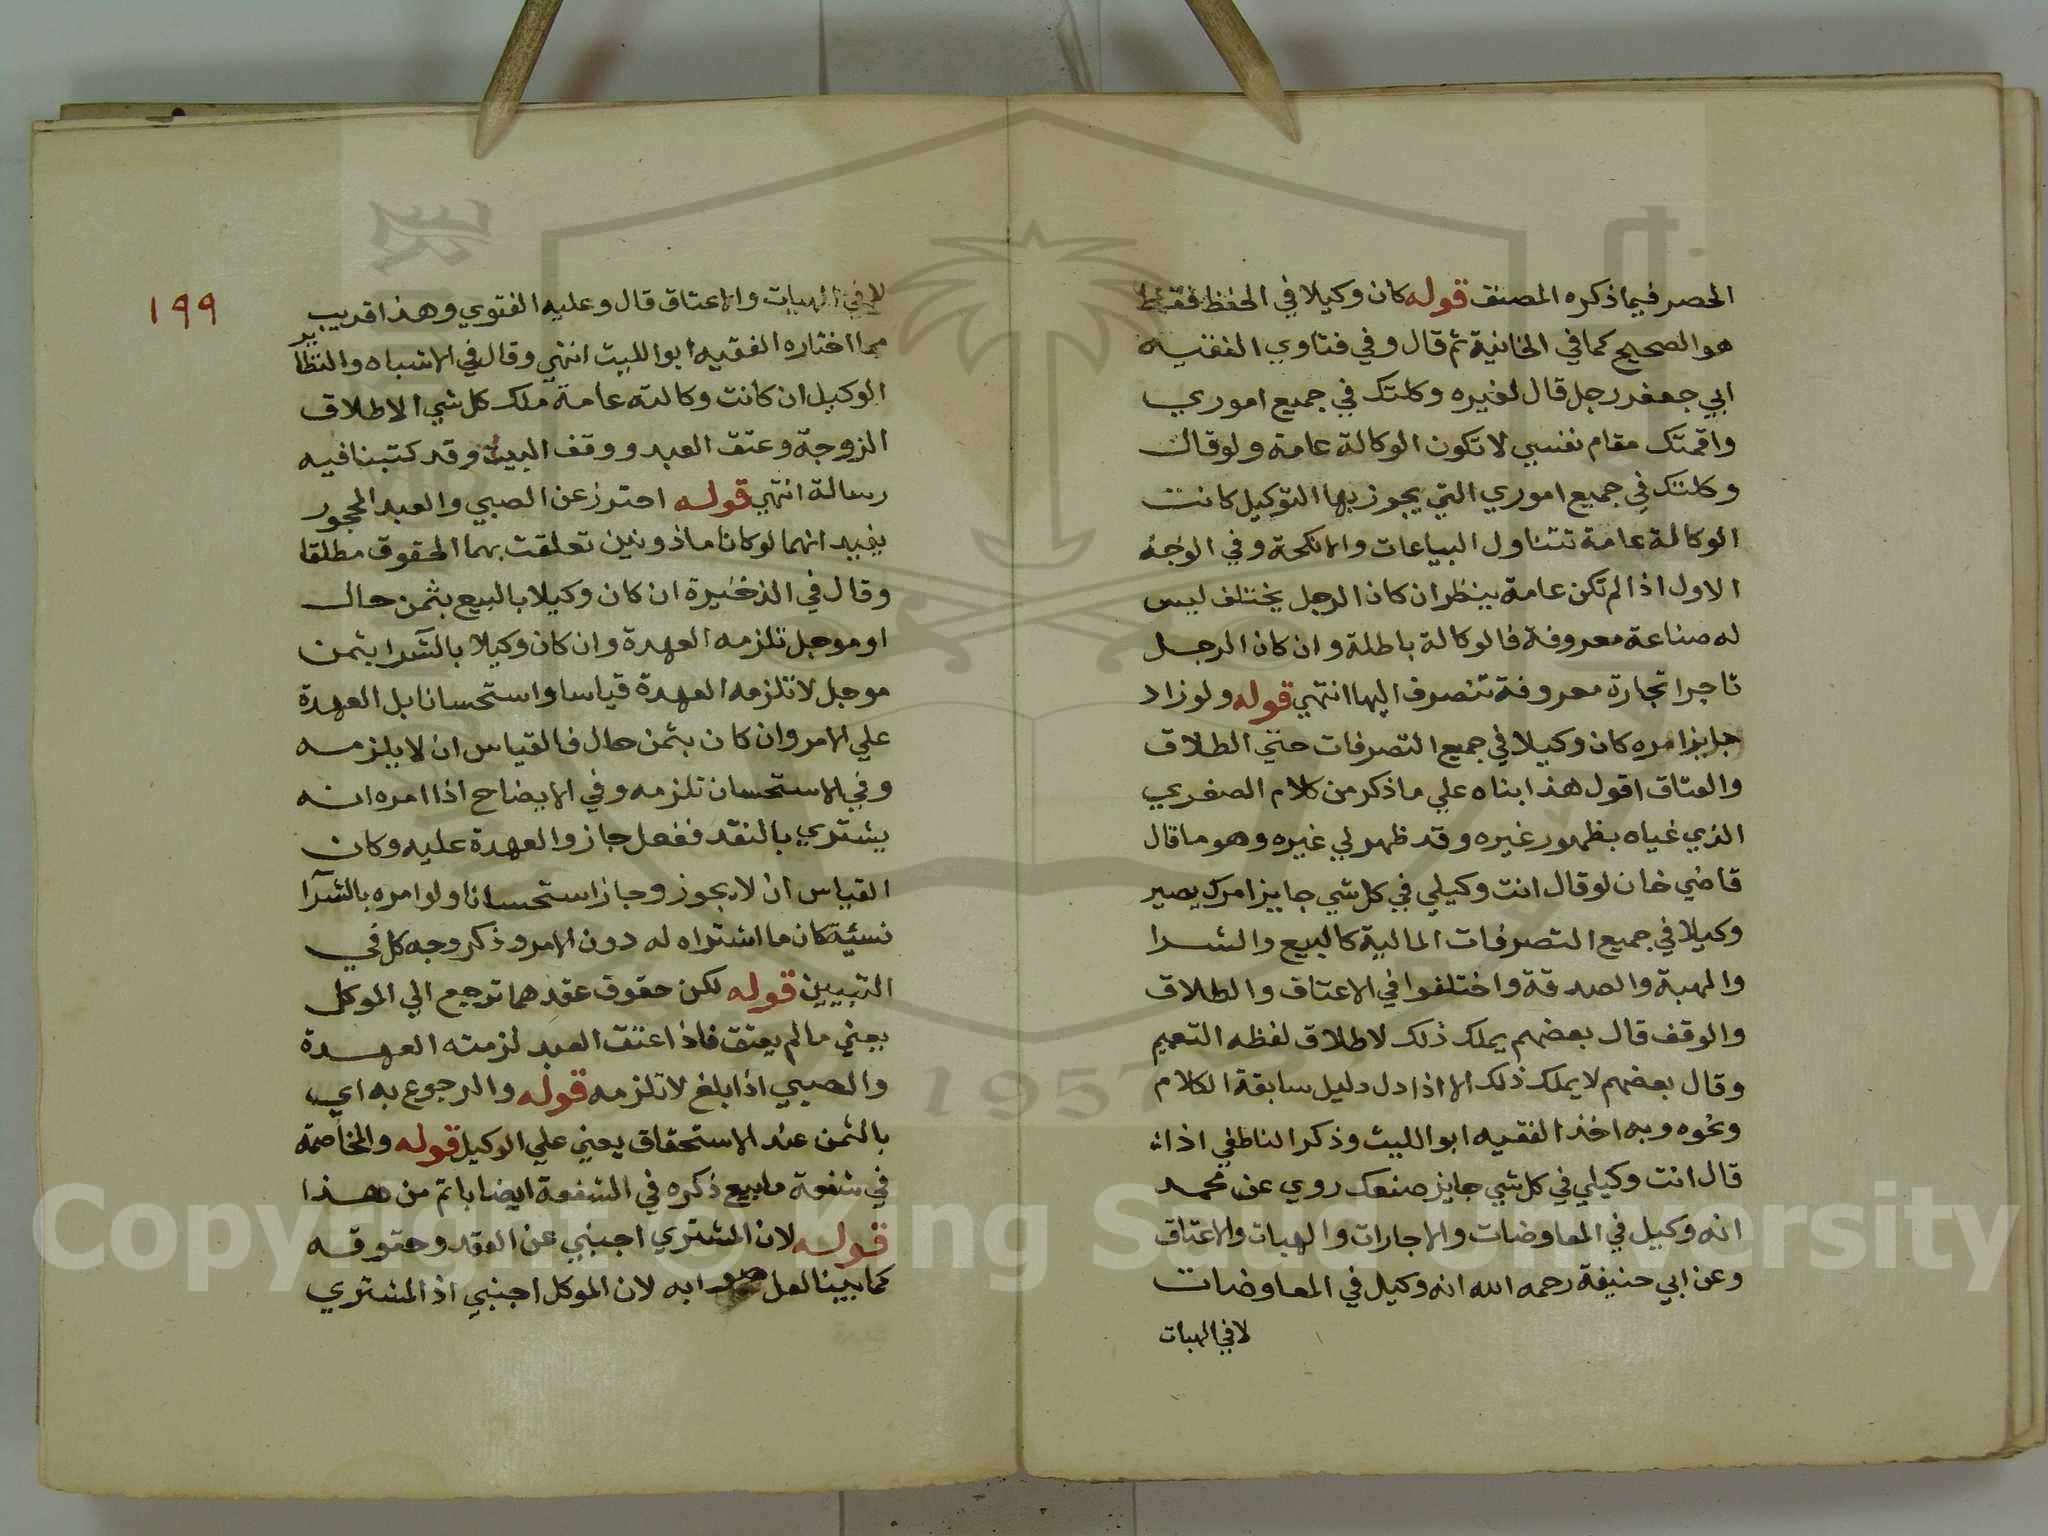 الحصر فيما ذكره المصنف قوله كان وكيلا في الحفظ فقط
هو الصحيح كما في الخانية ثم قال وفي فتاوي الفقيه
ابي جعفر رجل قال لغيره وكلتك في جميع اموري
واقمتك مقام نفسي لا تكون الوكالة عامة ولو قال
وكلتك في جميع اموري التي يجوز بها التوكيل كانت
الوكالة عامة تتناول البياعات والانكحة وفي الوجه
الاول اذا لم تكن عامة ينظر ان كان الرجل يختلف ليس
له صناعة معروفة فالوكالة باطلة وان كان الرجل
تاجرا تجارة معروفة تنصرف اليها انتهي قوله ولو زاد
جايز امره كان وكيلا في جميع التصرفات حتي الطلاق
والعتاق اقول هذا بناه علي ما ذكر من كلام الصغري
الذي غياه بظهور غيره وقد ظهر لي غيره وهو ما قال
قاضي خان لو قال انت وكيلي في كل شي جايز امرك يصير
وكيلا في جميع التصرفات المالية كالبيع والشرا
والهبة والصدقة واختلفوا في الاعتاق والطلاق
والوقف قال بعضهم يملك ذلك لاطلاق لفظه التعميم
وقال بعضهم لا يملك ذلك الا اذا دل دليل سابقة الكلام
ونحوه وبه اخذ الفقيه ابو الليث وذكر الناطفي اذا
قال انت وكيلي في كل شي جايز صنعك روي عن محمد
انه وكيل في المعاوضات والاجارات والهبات والاعتاق
وعن ابي حنيفة رحمه الله انه وكيل في المعاوضات
لا في الهبات
١٩٩
لا في الهبات والاعتاق قال وعليه الفتوي وهذا قريب
مما اختاره الفقيه ابو الليث انتهي وقال في الاشباه والنظاير
الوكيل ان كانت وكالته عامة ملك كل شي الا طلاق
الزوجة وعتق العبد ووقف البيت وقد كتبنا فيه
رسالة انتهي قوله احترز عن الصبي والعبد المحجور
يفيد انهما لو كانا ماذونين تعلقت بهما الحقوق مطلقا
وقال في الذخيرة ان كان وكيلا بالبيع بثمن حال
او موجل تلزمه العهدة وان كان وكيلا بالشرا بثمن
موجل لا تلزمه العهدة قياسا واستحسانا بل العهدة
علي الامر وان كان بثمن حال فالقياس ان لا يلزمه
وفي الاستحسان تلزمه وفي الايضاح اذا امره انه
يشتري بالنقد ففعل جاز والعهدة عليه وكان
القياس ان لا يجوز وجاز استحسانا ولو امره بالشرا
نسيئة كان ما اشتراه له دون الامر وذكر وجه كل في
التبيين قوله لكن حقوق عقدهما ترجع الي الموكل
يعني ما لم يعتق فاذا اعتق العبد لزمته العهدة
والصبي اذا بلغ لا تلزمه قوله والرجوع به اي
بالثمن عند الاستحقاق يعني علي الوكيل قوله والمخاصمة
في شفعة ما بيع ذكره في الشفعة ايضا باتم من هذا
قوله لان المشتري اجنبي عن العقد وحقوقه
كما بينا لعل صوابه لان الموكل اجنبي اذ المشتري
1957
Copyright © King Saud University